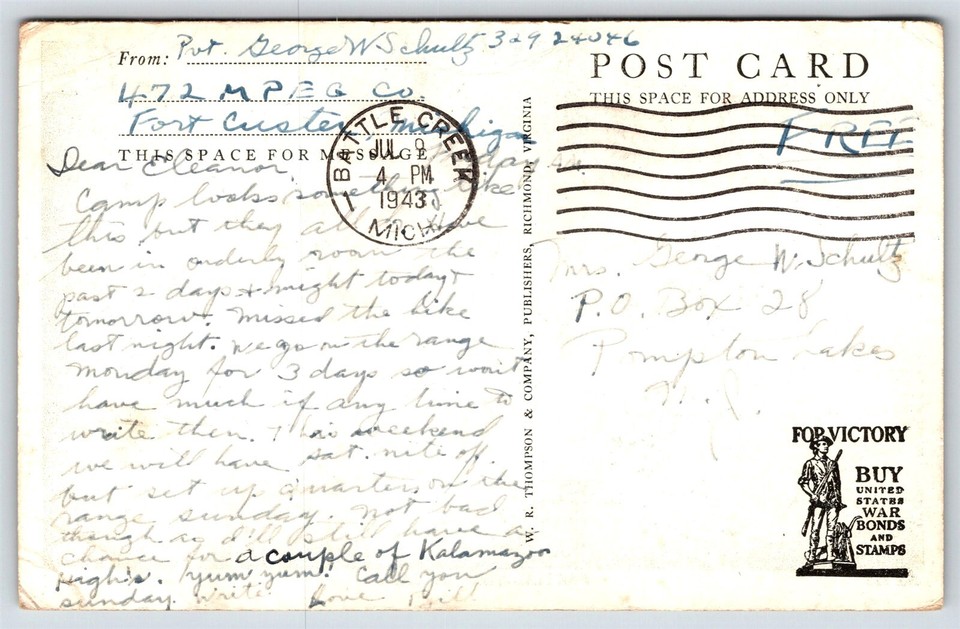 From: Pvt. George W Schultz 32924046
472 MPEG Co.
Fort Custer Michigan
THIS SPACE FOR MESSAGE
Dear Eleanor, Friday
Camp looks something like
this but they all have
been in orderly room the
past 2 days & night today &
tomorrow. Missed the hike
last night. We go on the range
Monday for 3 days so won't
have much if any time to
write then. This weekend
we will have sat. nite off
but set up quarters on the
range sunday. Not bad
though as I'll still have a
chance for a couple of Kalamazoo
High's. Yum yum! Call you
sunday. Write Love Bill
BATTLE CREEK
JUL 9
4 PM
1943
MICH.
W. R. THOMPSON & COMPANY, PUBLISHERS, RICHMOND, VIRGINIA
POST CARD
THIS SPACE FOR ADDRESS ONLY
FREE
Mrs. George W. Schultz
P.O. Box 28
Pompton Lakes
N.J.
FOR VICTORY
BUY
UNITED
STATES
WAR
BONDS
AND
STAMPS